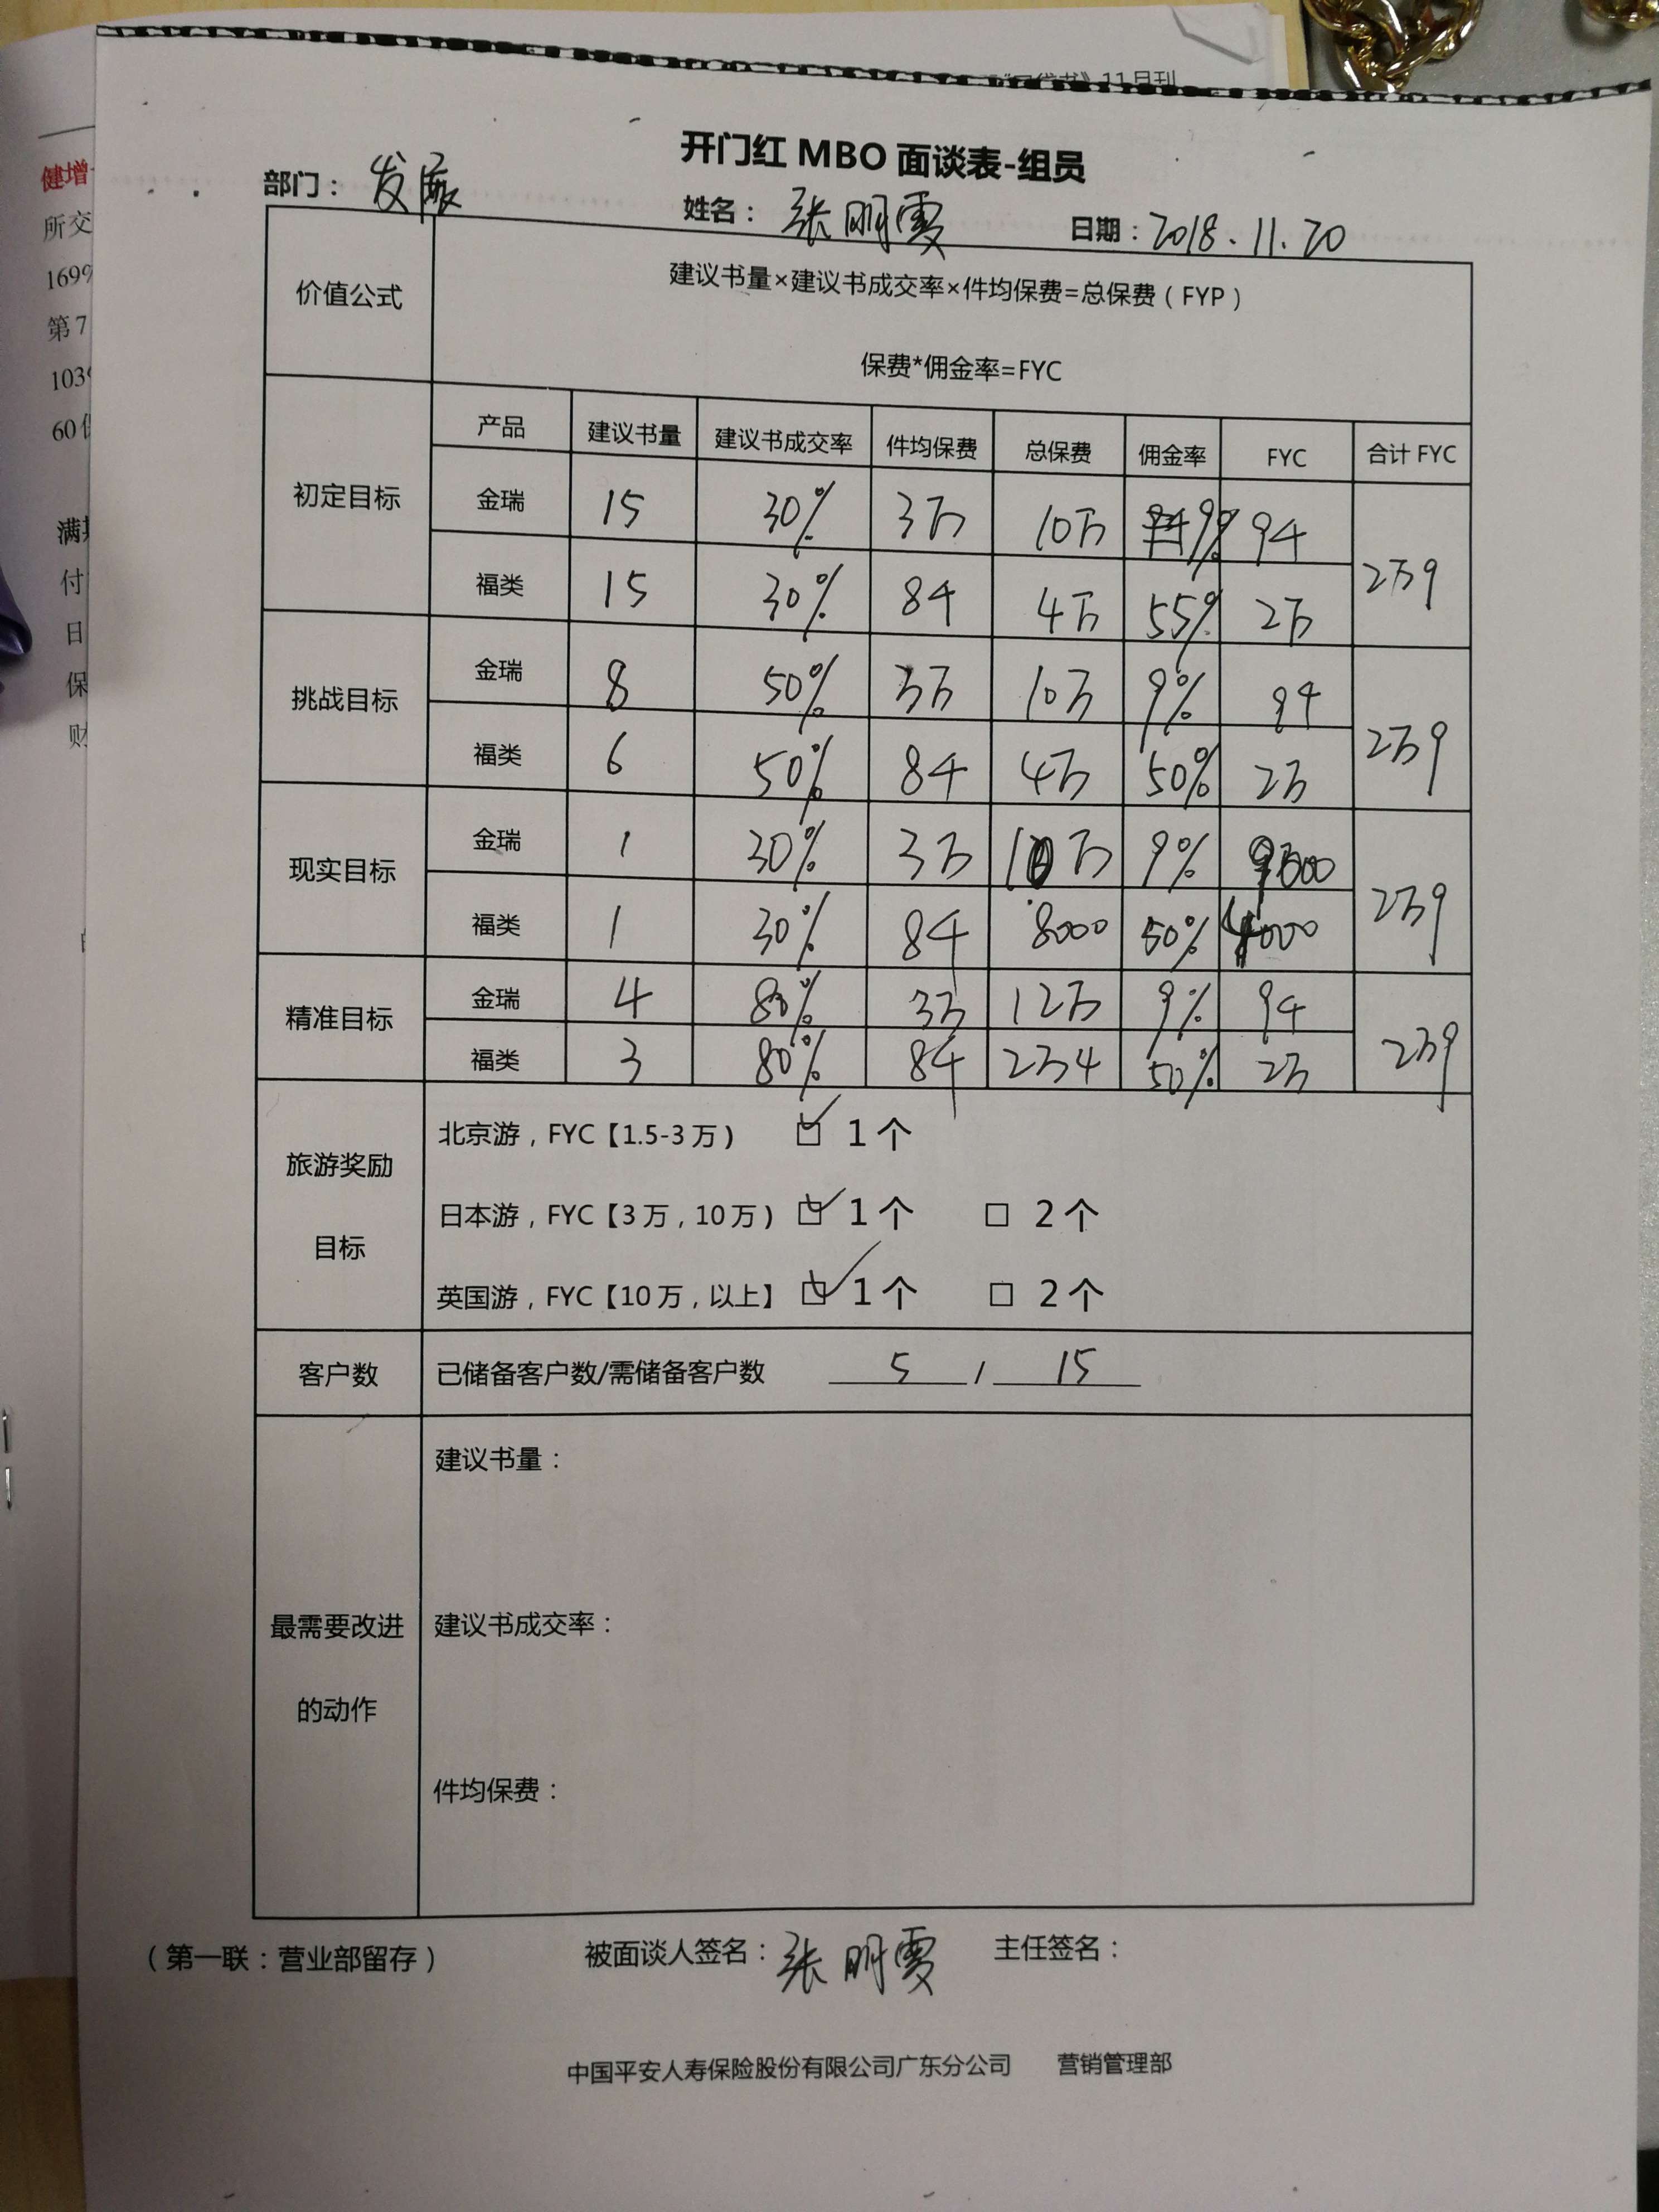 《云贷书》11月刊
健增
所交
169%
第7
103
60
满
付
日
保
财
开门红 MBO 面谈表-组员
部门： 发展 姓名： 张明霞 日期：2018.11.20
价值公式
建议书量×建议书成交率×件均保费=总保费（FYP）
保费*佣金率=FYC
产品 建议书量 建议书成交率 件均保费 总保费 佣金率 FYC 合计 FYC
初定目标
金瑞 15 30% 3万 10万 9% 94
福类 15 30% 84 4万 55% 2万 2万9
挑战目标
金瑞 8 50% 3万 10万 9% 94
福类 6 50% 84 4万 50% 2万 2万9
现实目标
金瑞 1 30% 3万 10万 9% 9000
福类 1 30% 84 8000 50% 4000 2万9
精准目标
金瑞 4 80% 3万 12万 9% 94
福类 3 80% 84 2万4 50% 2万 2万9
旅游奖励
目标
北京游，FYC【1.5-3万） ☑ 1个
日本游，FYC【3万，10万）☑ 1个 □ 2个
英国游，FYC【10万，以上】☑ 1个 □ 2个
客户数 已储备客户数/需储备客户数 5 / 15
最需要改进
的动作
建议书量：
建议书成交率：
件均保费：
（第一联：营业部留存） 被面谈人签名：张明霞 主任签名：
中国平安人寿保险股份有限公司广东分公司 营销管理部